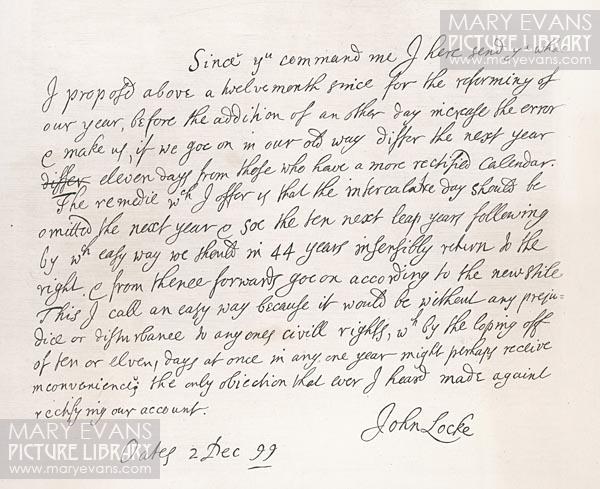 MARY EVANS
PICTURE LIBRARY
www.maryevans.com
MARY EVANS
PICTURE LIBRARY
www.maryevans.com
Since yu command me I here send yu what
I propos'd above a twelvemonth since for the reforming of
our year, before the addition of an other day increase the error
& make us, if we goe on in our old way differ the next year
differ eleven days from those who have a more rectified Calendar.
The remedie wch I offer is that the intercalare day should be
omitted the next year & soe the ten next leap years following
by wch easy way we should in 44 years insensibly return to the
right & from thence forwards goe on according to the new stile
This I call an easy way because it would be without any preju-
dice or disturbance to any ones civill rights, wch by the loping off
of ten or eleven days at once in any one year might perhaps receive
inconvenience, the only obiection that ever I heard made against
rectifying our account.
John Locke
Oates 2 Dec 99
MARY EVANS
PICTURE LIBRARY
www.maryevans.com